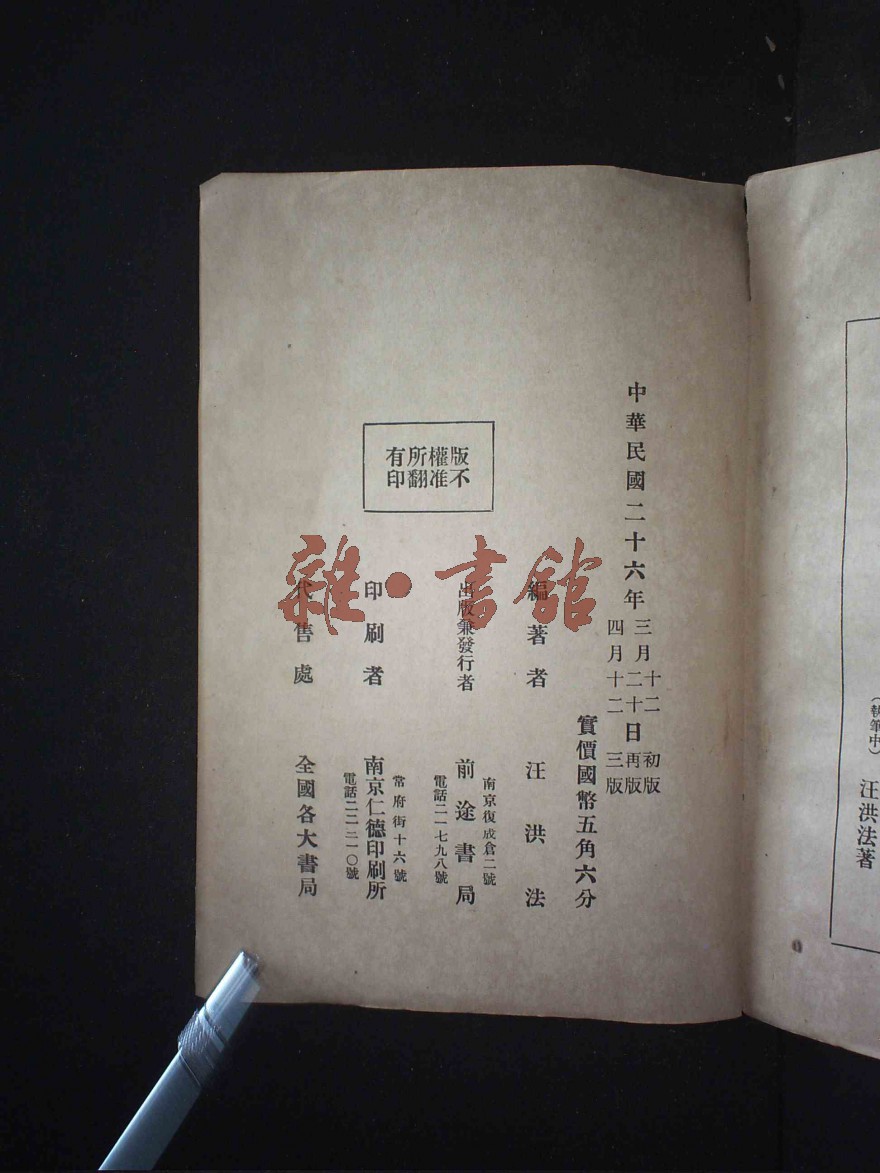 (執筆中) 汪洪法著
中華民國二十六年
三月十二
二十日
四月十二
初版
再版
三版
實價國幣五角六分
編著者 汪洪法
出版兼發行者
南京復成倉二號
前途書局
電話二一七九八號
印刷者
常府街十六號
南京仁德印刷所
電話二二三一〇號
代售處 全國各大書局
版權所有
不准翻印
雜·書館